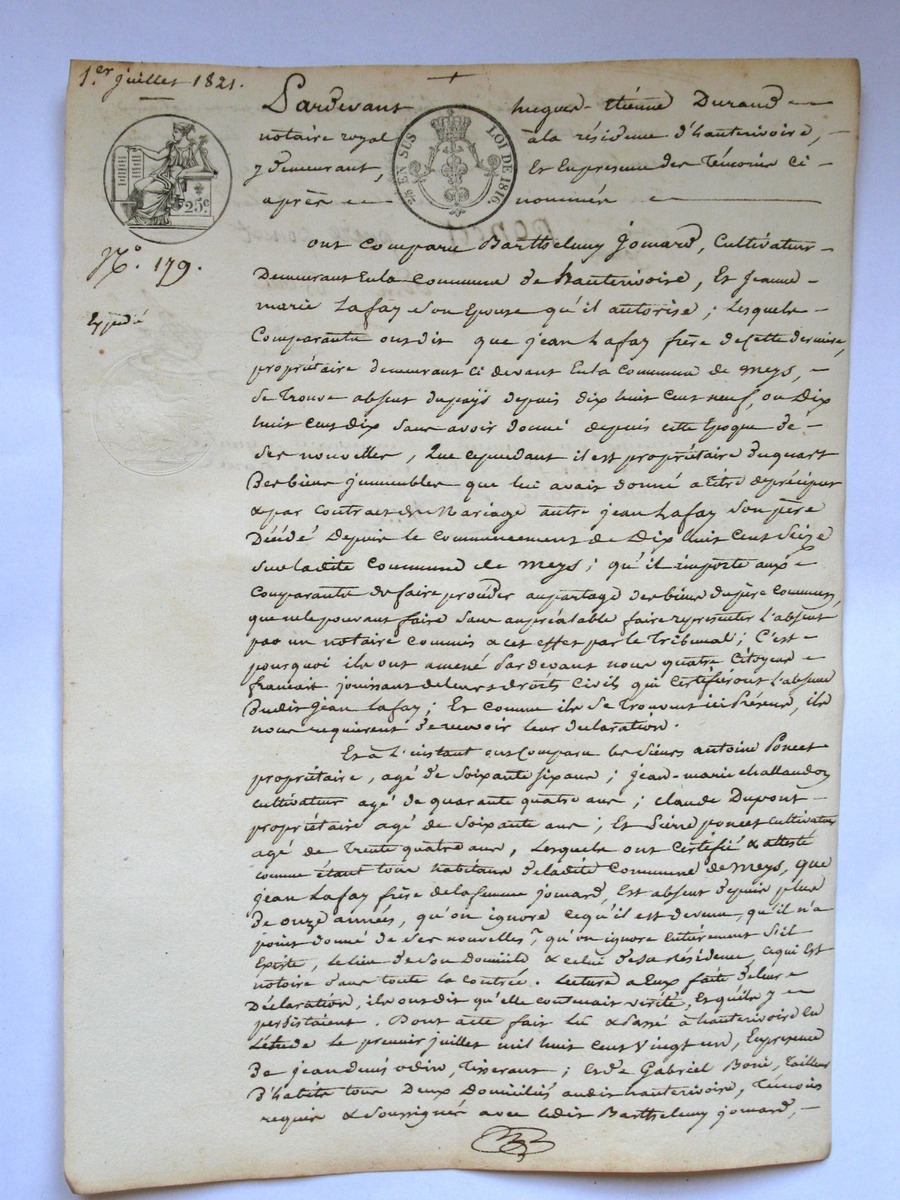 1.er juillet 1821.
Pardevant hugues-Etiénne Durand
notaire royal à la résidence d'hauterivoire,
y demeurant, Et En présence des Témoins ci-
après nommés
25 EN SUS LOI DE 1816
25c
N.o 179.
Expédié
ont comparu Barthelemy Jomard, Cultivateur
Demeurant En la commune de hauterivoire, Et Jeanne
marie Lafay Son Epouse qu'il autorise; Lesquels
Comparants ont dit que jean Lafay frère de Cette derniere,
propriétaire demeurant ci devant En la Commune de meys,
Se Trouve absent du païs depuis dix huit Cent neuf, ou Dix
huit Cent dix Sans avoir donné depuis cette Epoque de
Ses nouvelles, Que cependant il est propriétaire du quart
Des biens immeubles que lui avait donné a titre de préciput
& par Contract de Mariage autre jean Lafay Son père
Décédé Depuis le commencement de Dix huit Cent Seize
Sur la dite Commune de meys; qu'il importe aux
Comparants de faire procéder au partage des biens du père Commun,
que ne le pouvant faire Sans au préalable faire représenter L'absent
par un notaire Commis a cet effet par le Tribunal; C'est
pourquoi ils ont amené Pardevant nous quatre Citoyens
français jouissant de leurs droits Civils qui Certifiéront L'absence
Dudit Jean Lafay; Et Comme ils Se Trouvent ici Présens, ils
nous requièrent de recevoir leur déclaration.
Et à L'instant ont Comparu les Sieurs antoine Poncet
propriétaire, agé de Soixante Six ans; Jean-marie challandon
cultivateur agé de quarante quatre ans; Claude Dupont
propriétaire agé de Soixante ans; Et Pierre poncet Cultivateur
agé de Trente quatre ans, Lesquels ont Certifié & attesté
comme étant tous habitans de ladite Commune de Meys, que
jean Lafay frère de la femme jomard, Est absent depuis plus
de onze années, qu'on ignore ce qu'il est devenu, qu'il n'a
point donné de Ses nouvelles, qu'on ignore Entièrement S'il
Existe, le lieu de Son Domicile & celui de Sa résidence, ce qui Est
notoire dans toute la Contrée. Lecture a Eux faite de leur
Déclaration, ils ont dit qu'elle Contenait vérité, Et qu'ils y
persistaient. Dont acte fait Lu & Passé à hauterivoire En
L'étude le premier juillet mil huit Cent Vingt un, En présence
de jean denis odin, Tisserant; Et de Gabriel Boni, Tailleur
D'habits tous Deux Domiciliés audit hauterivoire, Témoins
requis & Soussignés avec ledit Barthelemy jomard,